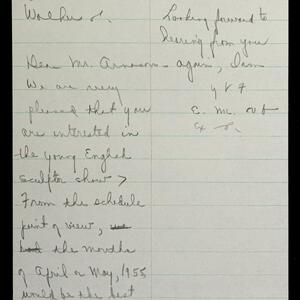 Walker
Looking forward to
hearing from you
Dear Mr. Arnason - again, I am
We are very
pleased that you
are interested in
the young English
sculptor show >
From the schedule
point of view,
the months
of April or May, 1955
would be the best